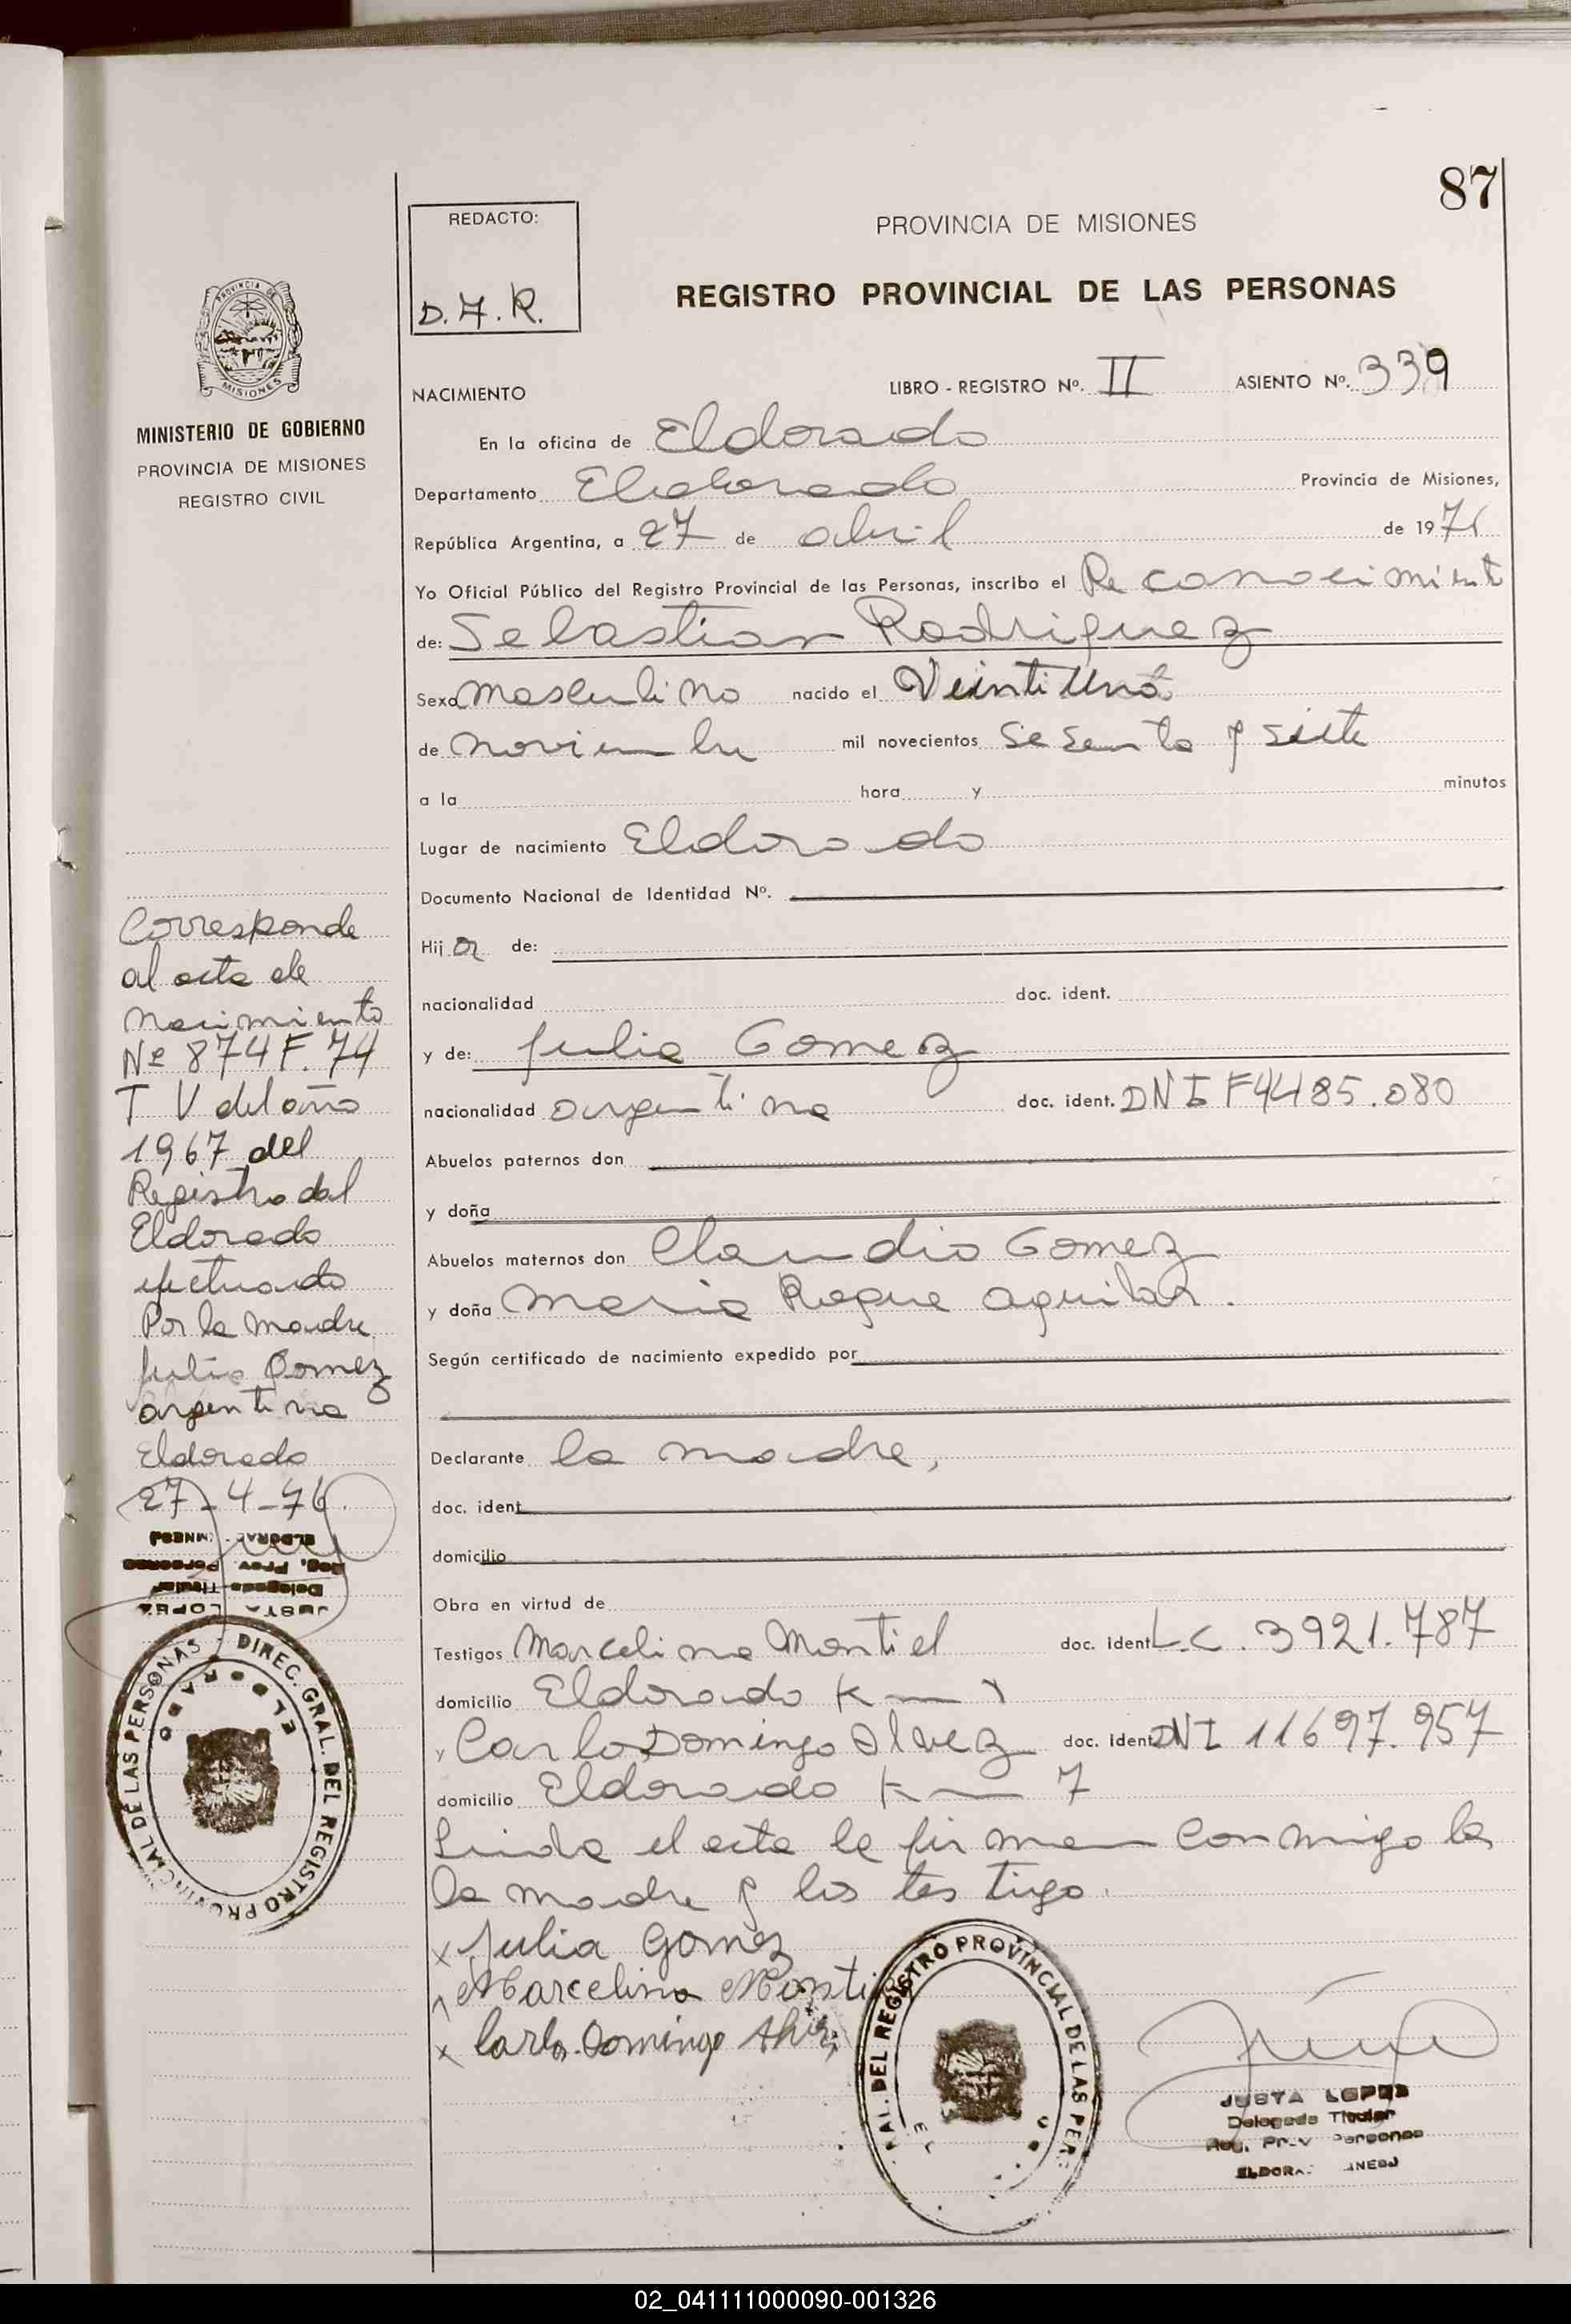 87
REDACTO:
D.J.R.
PROVINCIA DE MISIONES
REGISTRO PROVINCIAL DE LAS PERSONAS
PROVINCIA DE
MISIONES
MINISTERIO DE GOBIERNO
PROVINCIA DE MISIONES
REGISTRO CIVIL
NACIMIENTO LIBRO - REGISTRO Nº. II ASIENTO Nº. 339
En la oficina de Eldorado
Departamento Eldorado Provincia de Misiones,
República Argentina, a 27 de abril de 1976
Yo Oficial Público del Registro Provincial de las Personas, inscribo el Reconocimiento
de: Sebastian Rodriguez
Sexo masculino nacido el Veintiuno
de noviembre mil novecientos sesenta y siete
a la hora y minutos
Lugar de nacimiento Eldorado
Documento Nacional de Identidad Nº.
Hij o de:
nacionalidad doc. ident.
y de: Julia Gomez
nacionalidad argentina doc. ident. DNI F4485.080
Abuelos paternos don
y doña
Abuelos maternos don Claudio Gomez
y doña Maria Roque Aguilar.
Según certificado de nacimiento expedido por
Declarante la madre,
doc. ident
domicilio
Obra en virtud de
Testigos Marcelina Montiel doc. ident L.C. 3921.787
domicilio Eldorado Km
y Carlo Domingo Alvez doc. ident DNI 11697.957
domicilio Eldorado Km 7
Leida el acta la firman conmigo la
la madre y los testigo.
x Julia Gomez
Marcelina Monti
x Carlo. Domingo
JUSTA LOPEZ
Delegada Titular
Reg. Prov Personas
Corresponde
al acta de
nacimiento
Nº 874 F. 74
T V del año
1967 del
Registro del
Eldorado
efectuado
Por la madre
Julia Gomez
argentina
Eldorado
27-4-76.
JUSTA LOPEZ
Delegada Titular
Reg. Prov Personas
DIREC. GRAL. DEL REGISTRO PROVINCIAL DE LAS PERSONAS
ELDORADO
AL. DEL REGISTRO PROVINCIAL DE LAS PERS
02_041111000090-001326